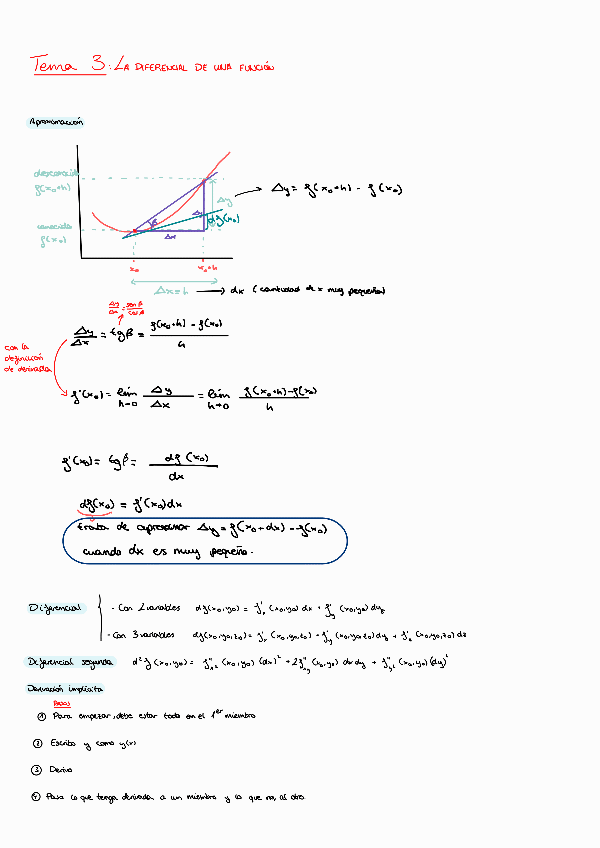 Tema 3: LA DIFERENCIAL DE UNA FUNCIÓN
Aproximación
desconocida
f(x₀+h)
conocido
f(x₀)
β
Δx
Δy
Δy
df(x₀)
Δy = f(x₀+h) - f(x₀)
x₀
x₀+h
Δx=h → dx (cantidad de x muy pequeña)
Δy/Δx = sen β/cos β
Δy/Δx = tg β = (f(x₀+h) - f(x₀))/h
con la
definición
de derivada
f'(x₀) = lím h→0 Δy/Δx = lím h→0 (f(x₀+h) - f(x₀))/h
f'(x₀) = tg β = df(x₀)/dx
df(x₀) = f'(x₀)dx
trata de aproximar Δy = f(x₀+dx) - f(x₀)
cuando dx es muy pequeño.
Diferencial
- Con 2 variables df(x₀,y₀) = f'ₓ (x₀,y₀) dx + f'y (x₀,y₀) dy
- Con 3 variables df(x₀,y₀,z₀) = f'ₓ (x₀,y₀,z₀) + f'y (x₀,y₀,z₀) dy + f'z (x₀,y₀,z₀) dz
Diferencial segunda d²f (x₀,y₀) = f''x² (x₀,y₀) (dx)² + 2f''xy (x₀,y₀) dx dy + f''y² (x₀,y₀) (dy)²
Derivación implícita
PASOS
1 Para empezar, debe estar todo en el 1er miembro
2 Escribo y como y(x)
3 Derivo
4 Paso lo que tenga derivada a un miembro y lo que no, al otro.